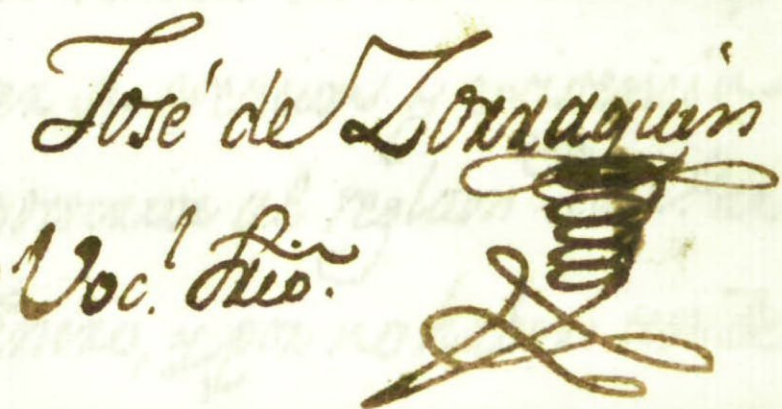 José de Zorraquin
Voc.l Srio.